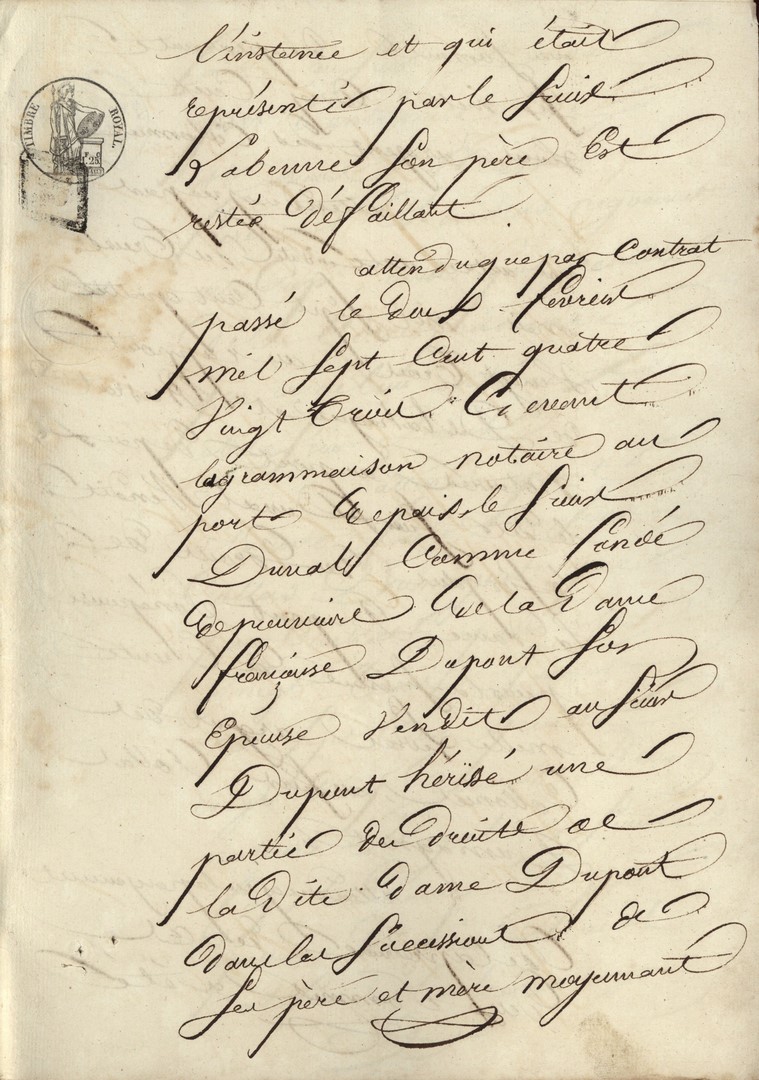 TIMBRE ROYAL
l'instance et qui était
représenté par le Sieur
Labenne Son père Est
restés Défaillant
attendu que par Contrat
passé le Doux fevrier
mil Sept Cent quatre
Vingt Trois Devant
lagrammaison notaire au
port depaix le Sieur
Duval Comme fondé
de procuration de la Dame
françoise Dupont Son
Epouse Vendit au Sieur
Dupont hérissé une
partie des droits de
la Dite dame Dupont
Dans les Successions de
Ses père et mère moyennant